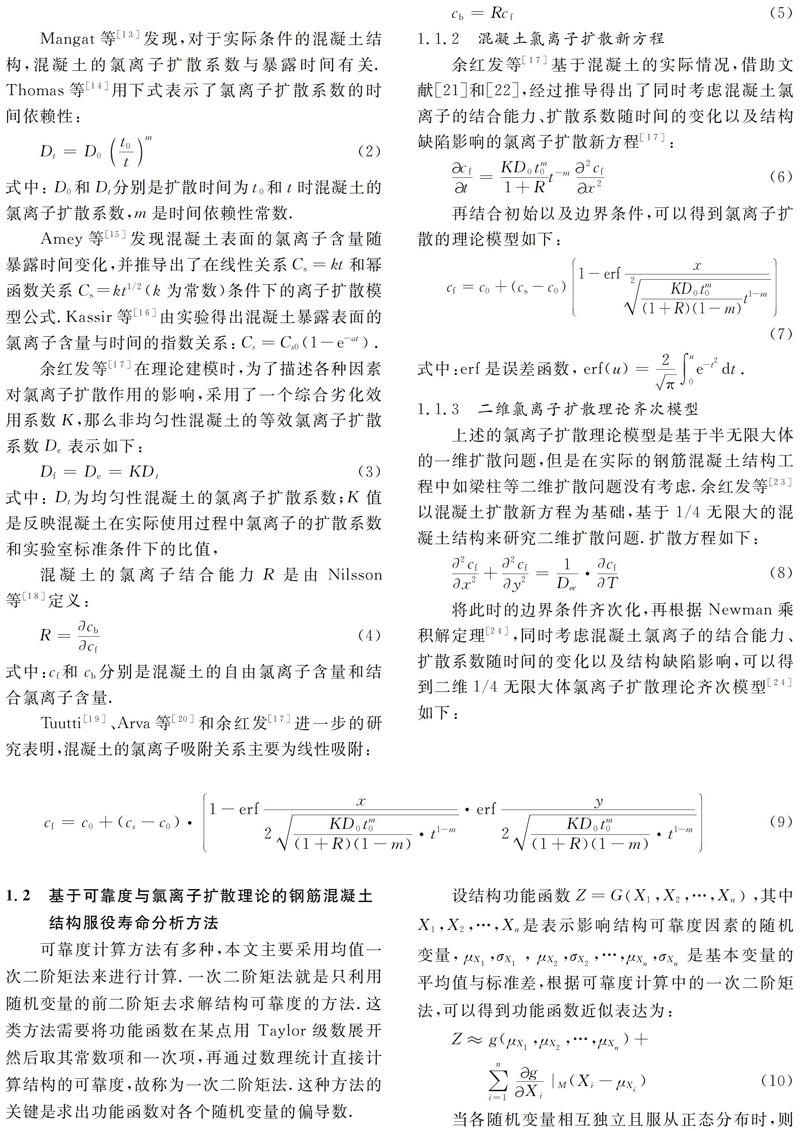 Mangat 等[13]发现,对于实际条件的混凝土结
构,混凝土的氯离子扩散系数与暴露时间有关.
Thomas 等[14]用下式表示了氯离子扩散系数的时
间依赖性:
D_t = D_0 (t_0/t)^m (2)
式中: D_0 和 D_t 分别是扩散时间为 t_0 和 t 时混凝土的
氯离子扩散系数,m 是时间依赖性常数.
Amey 等[15]发现混凝土表面的氯离子含量随
暴露时间变化,并推导出了在线性关系 C_s = kt 和幂
函数关系 C_s = kt^{1/2} (k 为常数)条件下的离子扩散模
型公式. Kassir 等[16]由实验得出混凝土暴露表面的
氯离子含量与时间的指数关系: C_s = C_{s0}(1-e^{-at}) .
余红发等[17]在理论建模时,为了描述各种因素
对氯离子扩散作用的影响,采用了一个综合劣化效
用系数 K,那么非均匀性混凝土的等效氯离子扩散
系数 D_e 表示如下:
D_f = D_e = KD_t (3)
式中: D_t 为均匀性混凝土的氯离子扩散系数;K 值
是反映混凝土在实际使用过程中氯离子的扩散系数
和实验室标准条件下的比值,
混凝土的氯离子结合能力 R 是由 Nilsson
等[18]定义:
R = ∂c_b/∂c_f (4)
式中:c_f 和 c_b 分别是混凝土的自由氯离子含量和结
合氯离子含量.
Tuutti[19]、Arva 等[20]和余红发[17]进一步的研
究表明,混凝土的氯离子吸附关系主要为线性吸附:
c_b = Rc_f (5)
1.1.2 混凝土氯离子扩散新方程
余红发等[17]基于混凝土的实际情况,借助文
献[21]和[22],经过推导得出了同时考虑混凝土氯
离子的结合能力、扩散系数随时间的变化以及结构
缺陷影响的氯离子扩散新方程[17]:
∂c_f/∂t = (KD_0 t_0^m/(1+R)) t^{-m} ∂^2c_f/∂x^2 (6)
再结合初始以及边界条件,可以得到氯离子扩
散的理论模型如下:
c_f = c_0 + (c_s - c_0) [1 - erf x/(2√(KD_0 t_0^m/((1+R)(1-m)) t^{1-m}))]
(7)
式中:erf 是误差函数, erf(u) = 2/√π ∫_0^u e^{-t^2} dt .
1.1.3 二维氯离子扩散理论齐次模型
上述的氯离子扩散理论模型是基于半无限大体
的一维扩散问题,但是在实际的钢筋混凝土结构工
程中如梁柱等二维扩散问题没有考虑.余红发等[23]
以混凝土扩散新方程为基础,基于 1/4 无限大的混
凝土结构来研究二维扩散问题.扩散方程如下:
∂^2c_f/∂x^2 + ∂^2c_f/∂y^2 = 1/D_{ee} · ∂c_f/∂T (8)
将此时的边界条件齐次化,再根据 Newman 乘
积解定理[24],同时考虑混凝土氯离子的结合能力、
扩散系数随时间的变化以及结构缺陷影响,可以得
到二维 1/4 无限大体氯离子扩散理论齐次模型[24]
如下:
c_f = c_0 + (c_s - c_0) · [1 - erf x/(2√(KD_0 t_0^m/((1+R)(1-m)) · t^{1-m})) · erf y/(2√(KD_0 t_0^m/((1+R)(1-m)) · t^{1-m}))] (9)
1.2 基于可靠度与氯离子扩散理论的钢筋混凝土
结构服役寿命分析方法
可靠度计算方法有多种,本文主要采用均值一
次二阶矩法来进行计算.一次二阶矩法就是只利用
随机变量的前二阶矩去求解结构可靠度的方法.这
类方法需要将功能函数在某点用 Taylor 级数展开
然后取其常数项和一次项,再通过数理统计直接计
算结构的可靠度,故称为一次二阶矩法.这种方法的
关键是求出功能函数对各个随机变量的偏导数.
设结构功能函数 Z = G(X_1,X_2,…,X_n) ,其中
X_1,X_2,…,X_n 是表示影响结构可靠度因素的随机
变量, μ_{X_1},σ_{X_1} , μ_{X_2},σ_{X_2},…,μ_{X_n},σ_{X_n} 是基本变量的
平均值与标准差,根据可靠度计算中的一次二阶矩
法,可以得到功能函数近似表达为:
Z ≈ g(μ_{X_1},μ_{X_2},…,μ_{X_n}) +
∑_{i=1}^n ∂g/∂X_i |_M (X_i - μ_{X_i}) (10)
当各随机变量相互独立且服从正态分布时,则